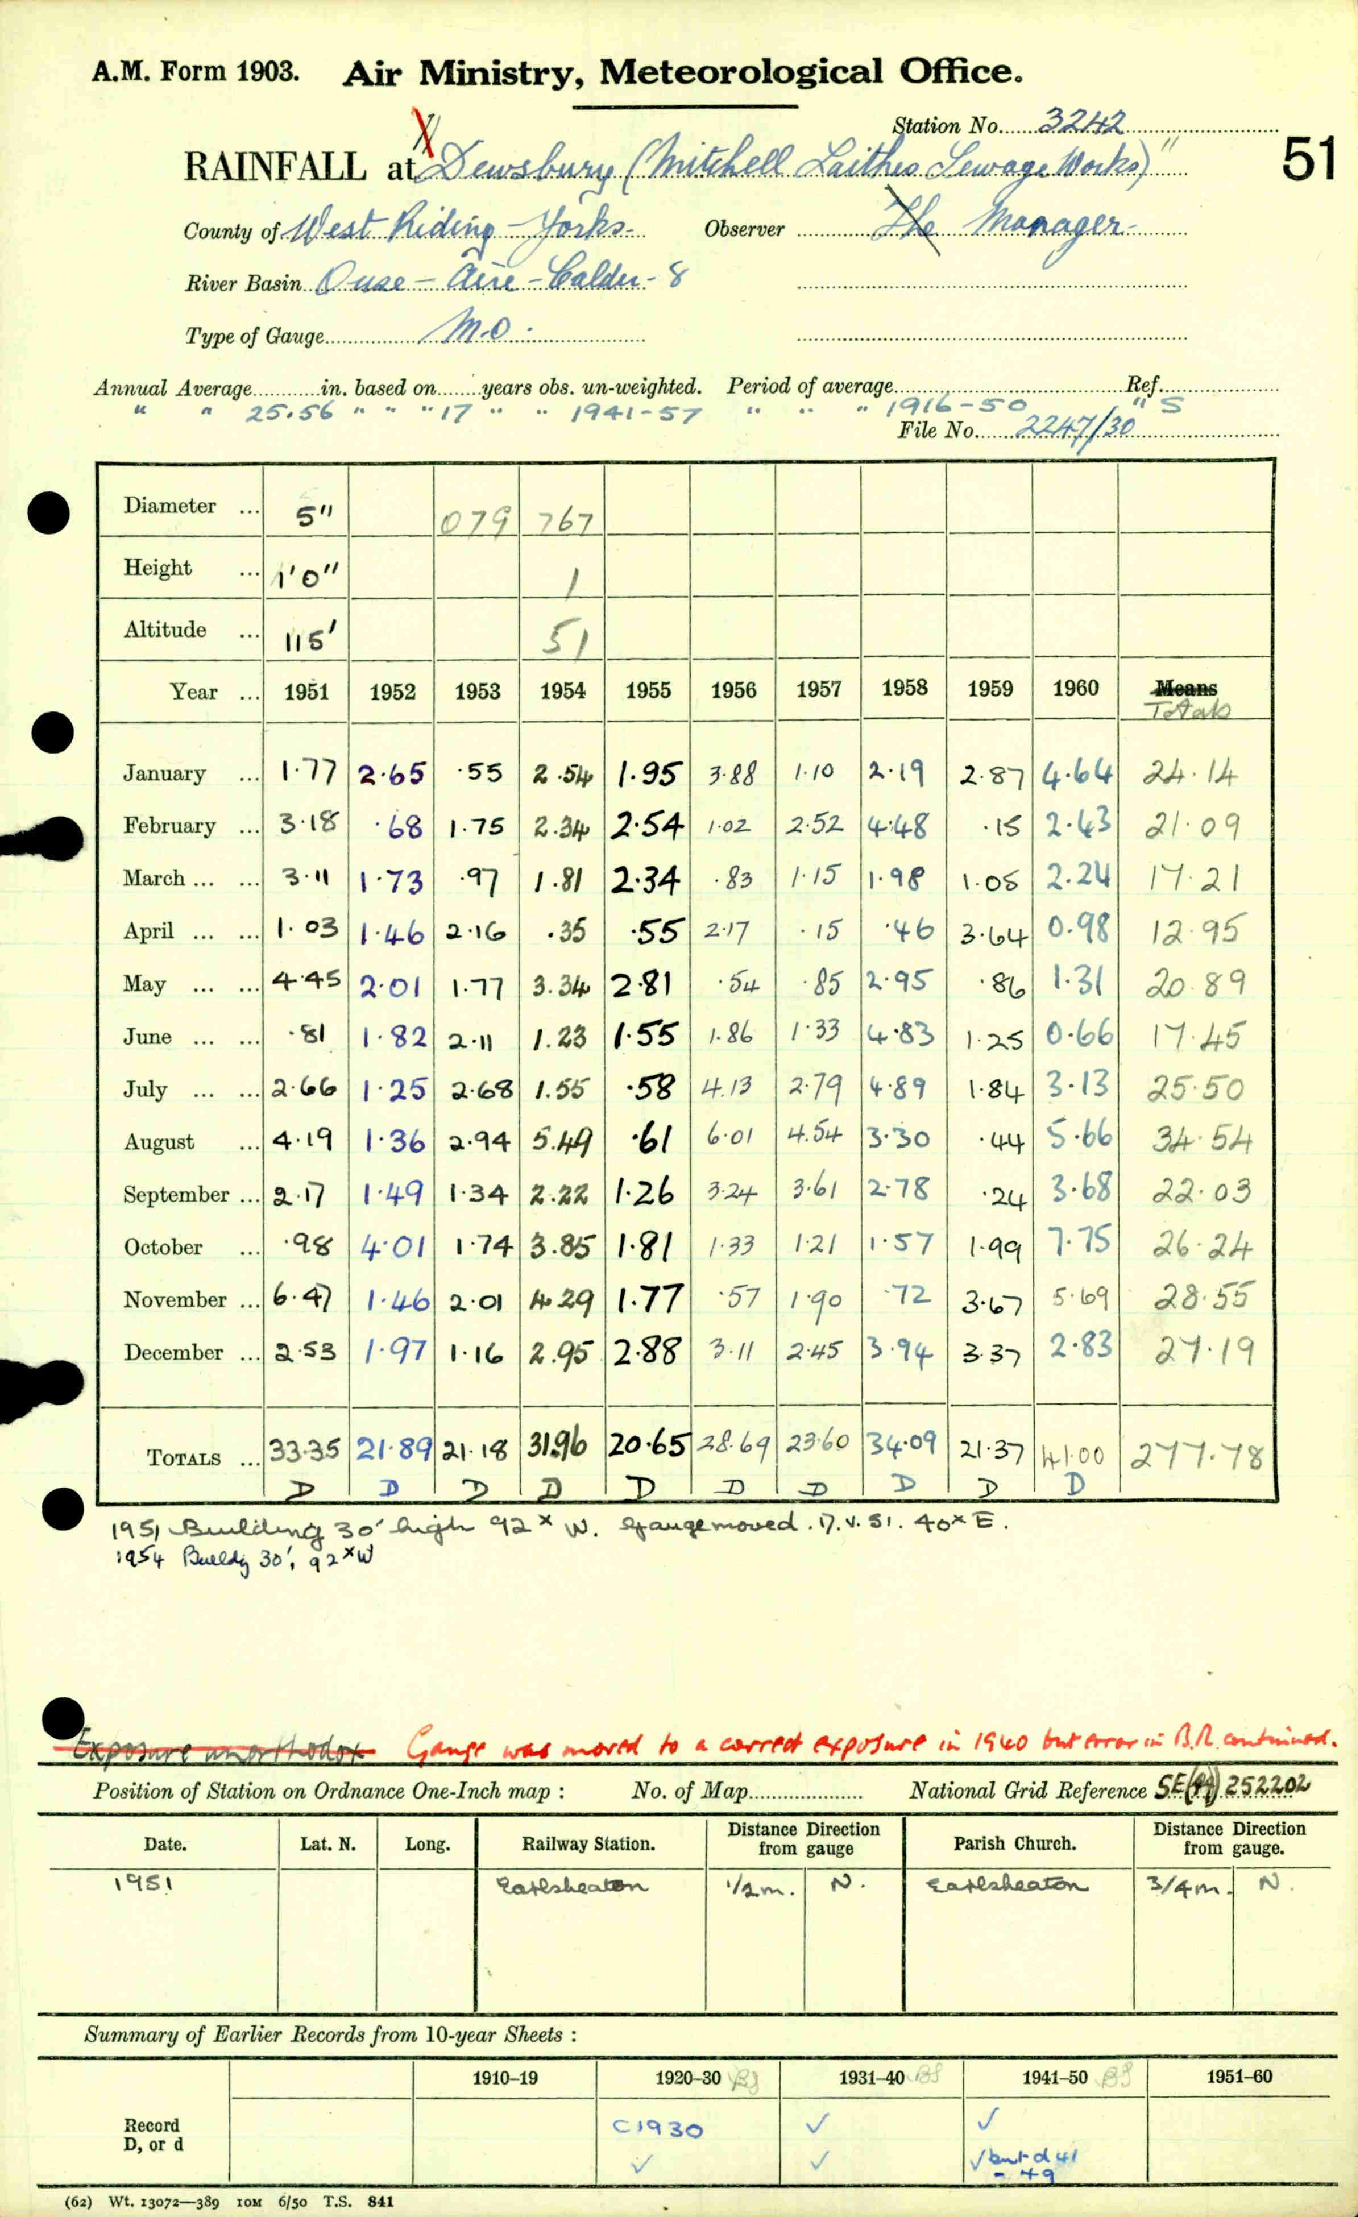 A.M. Form 1903. Air Ministry, Meteorological Office.
Station No. 3242
51
RAINFALL at "Dewsbury (Mitchell Laithes Sewage Works)"
County of West Riding - Yorks. Observer The Manager.
River Basin Ouse - Aire - Calder - 8
Type of Gauge M.O.
Annual Average in. based on years obs. un-weighted. Period of average Ref.
" " 25.56 " " " 17 " " 1941-57 " " " 1916-50 " S
File No. 2247/30
Diameter ... 5" 079 767
Height ... 1'0" 1
Altitude ... 115' 51
Year ... 1951 1952 1953 1954 1955 1956 1957 1958 1959 1960 Means
Totals
January ... 1.77 2.65 .55 2.54 1.95 3.88 1.10 2.19 2.87 4.64 24.14
February ... 3.18 .68 1.75 2.34 2.54 1.02 2.52 4.48 .15 2.43 21.09
March ... ... 3.11 1.73 .97 1.81 2.34 .83 1.15 1.98 1.05 2.24 17.21
April ... ... 1.03 1.46 2.16 .35 .55 2.17 .15 .46 3.64 0.98 12.95
May ... ... 4.45 2.01 1.77 3.34 2.81 .54 .85 2.95 .86 1.31 20.89
June ... ... .81 1.82 2.11 1.23 1.55 1.86 1.33 4.83 1.25 0.66 17.45
July ... ... 2.66 1.25 2.68 1.55 .58 4.13 2.79 4.89 1.84 3.13 25.50
August ... 4.19 1.36 2.94 5.49 .61 6.01 4.54 3.30 .44 5.66 34.54
September ... 2.17 1.49 1.34 2.22 1.26 3.24 3.61 2.78 .24 3.68 22.03
October ... .98 4.01 1.74 3.85 1.81 1.33 1.21 1.57 1.99 7.75 26.24
November ... 6.47 1.46 2.01 4.29 1.77 .57 1.90 .72 3.67 5.69 28.55
December ... 2.53 1.97 1.16 2.95 2.88 3.11 2.45 3.94 3.37 2.83 27.19
TOTALS ... 33.35 21.89 21.18 31.96 20.65 28.69 23.60 34.09 21.37 41.00 277.78
D D D D D D D D D D
1951 Building 30' high 92x W. Gauge moved. 17.V.51. 40x E.
1954 Buildg 30', 92x W
Exposure unorthodox Gauge was moved to a correct exposure in 1940 but error in B.R. continued.
Position of Station on Ordnance One-Inch map : No. of Map National Grid Reference SE 252202
Date. Lat. N. Long. Railway Station. Distance Direction from gauge Parish Church. Distance Direction from gauge.
1951 Earlsheaton 1/2 m. N. Earlsheaton 3/4 m. N.
Summary of Earlier Records from 10-year Sheets :
1910–19 1920–30 BS 1931–40 BS 1941–50 BS 1951–60
Record C1930 ✓ ✓
D, or d ✓ ✓ ✓ but d 41
- 49
(62) Wt. 13072—389 10M 6/50 T.S. 841